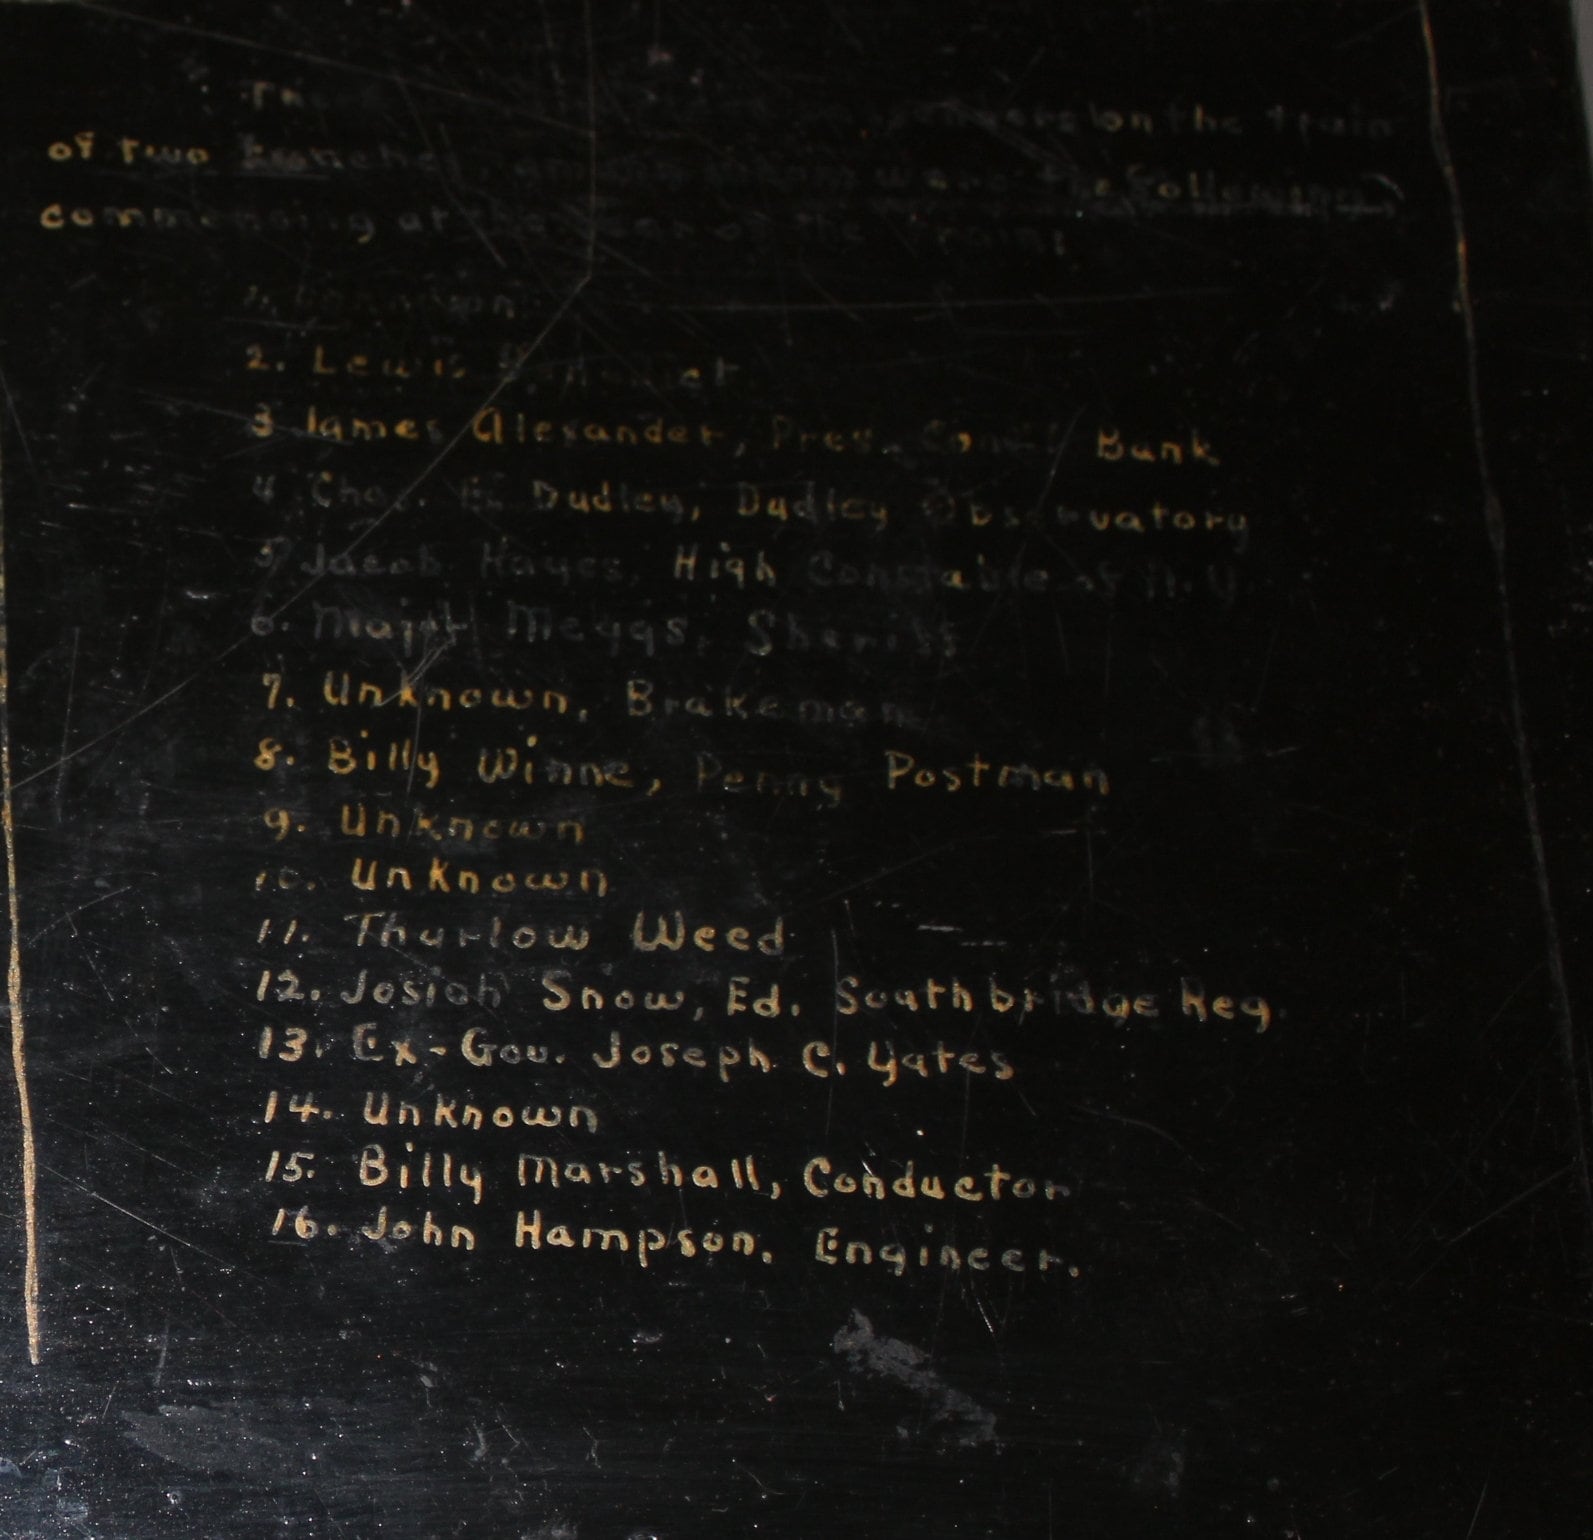 on the train
of two coaches, were the following,
commencing at the rear of the train:
1. Unknown
2. Lewis Benedict
3 James Alexander, Pres. Bank
4 Chas. E. Dudley, Dudley Observatory
5 Jacob Hayes, High Constable of N.Y.
6. Major Meggs, Sheriff
7. Unknown, Brakeman
8. Billy Winne, Penny Postman
9. Unknown
10. Unknown
11. Thurlow Weed
12. Josiah Snow, Ed. Southbridge Reg.
13. Ex-Gov. Joseph C. Yates
14. Unknown
15. Billy Marshall, Conductor
16. John Hampson, Engineer.